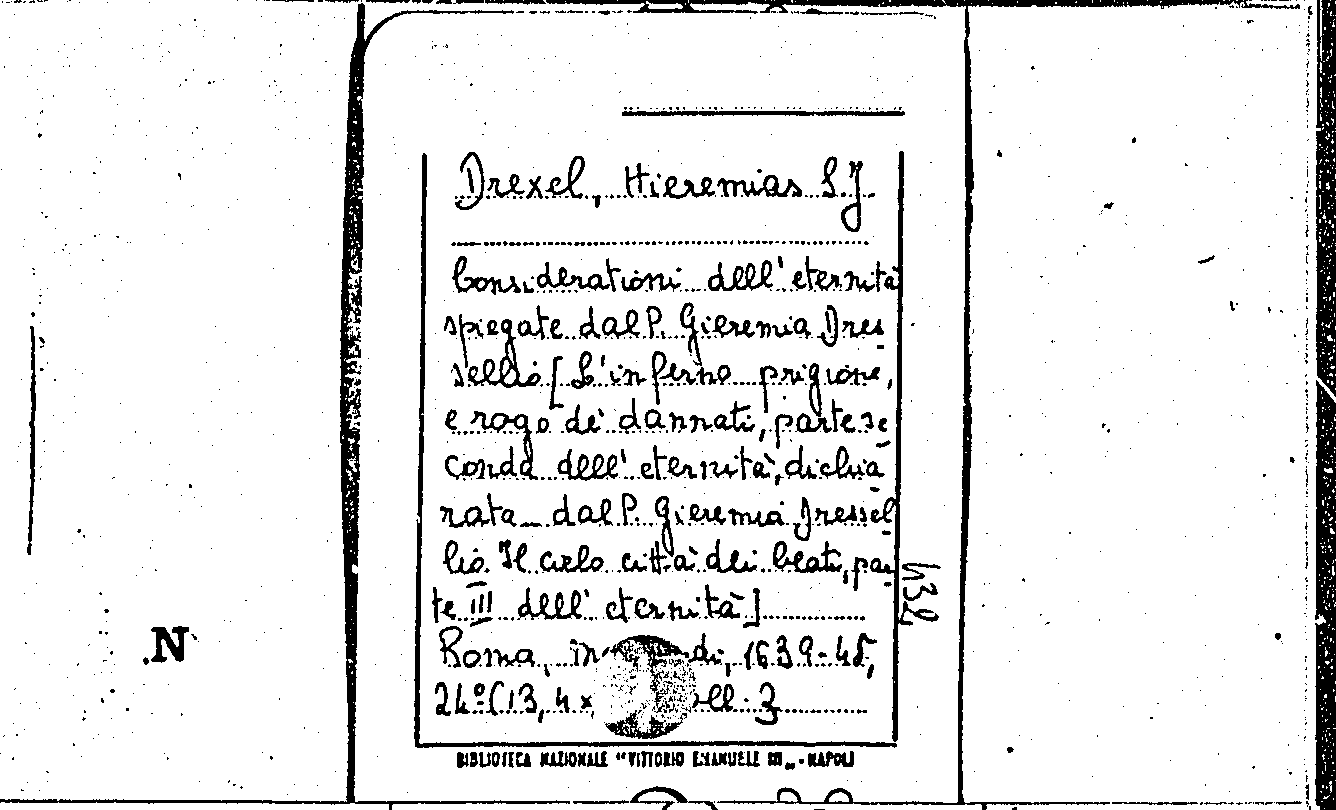 Drexel, Hieremias S.J.
Considerationi dell'eternità
spiegate dal P. Gieremia Dres
sellio [L'inferno prigione,
e rogo de' dannati, parte se
conda dell'eternità, dichia
rata dal P. Gieremia Dressel
lio. Il cielo città dei beati, par
te III dell'eternità]
Roma, 1639-45,
24º (13,4 x ll. 3
432
.N
BIBLIOTECA NAZIONALE "VITTORIO EMANUELE III„ - NAPOLI